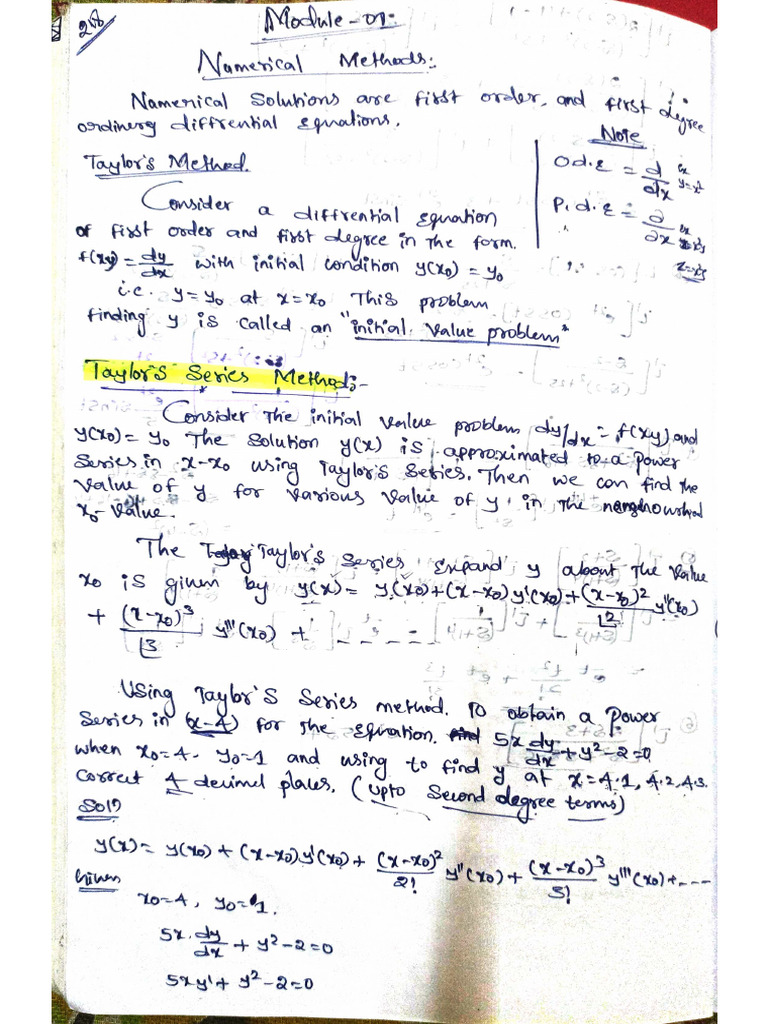 218
Module-01:
Numerical Methods:
Numerical Solutions are first order, and first degree
ordinery diffrential equations.
Note
O.d.E = d/dx
ex y=x²
P.d.E = ∂/∂x
ex
Taylor's Method.
Consider a diffrential equation
of first order and first degree in the form.
f(xy) = dy/dx with initial condition y(x₀) = y₀
i.e. y=y₀ at x=x₀ This problem
finding y is called an "initial value problem"
Taylor's Series Method:-
Consider The initial value problem dy/dx = f(xy) and
y(x₀) = y₀ The Solution y(x) is approximated to a power
Series in x-x₀ using Taylor's Series. Then we can find the
Value of y for various value of y in the
x₀-value.
The Taylor's Series Expand y about The value
x₀ is given by y(x) = y(x₀)+(x-x₀)y'(x₀)+(x-x₀)²/⌊2 y''(x₀)
+ (x-x₀)³/⌊3 y'''(x₀) + - - - - - -
Using Taylor's Series method. To obtain a power
Series in (x-4) for The Equation. 5x dy/dx + y²-2=0
when x₀=4. y₀=1 and using to find y at x=4.1, 4.2, 4.3.
correct 4 decimel places. (upto Second degree terms)
Solⁿ
y(x) = y(x₀) + (x-x₀)y'(x₀) + (x-x₀)²/2! y''(x₀) + (x-x₀)³/3! y'''(x₀)+----
Given
x₀=4, y₀=1.
5x.dy/dx + y²-2=0
5xy' + y²-2=0